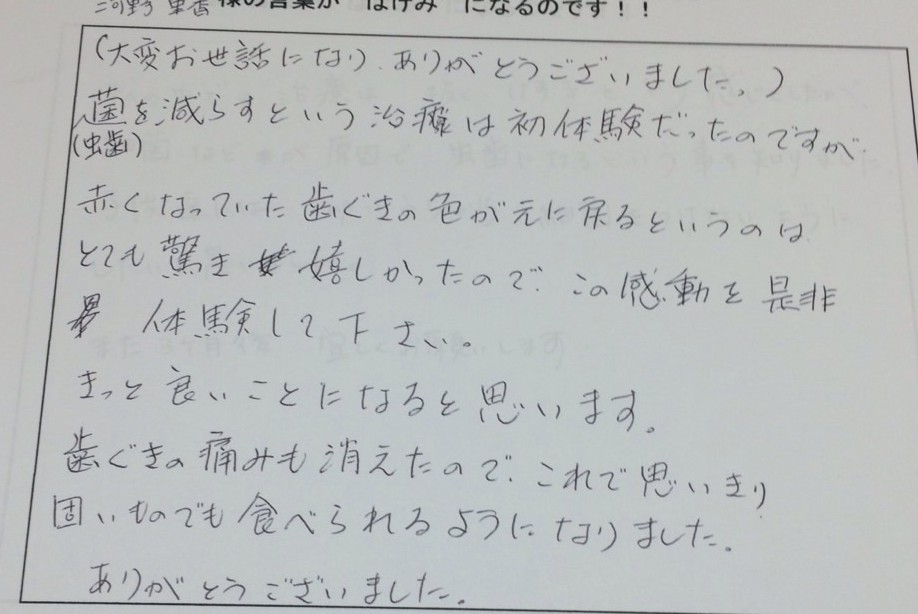 様の言葉が はげみ になるのです！！
(大変お世話になり、ありがとうございました。)
菌を減らすという治療は初体験だったのですが、
(虫歯)
赤くなっていた歯ぐきの色が元に戻るというのは
とても驚き 嬉しかったので、この感動を是非
体験して下さい。
きっと良いことになると思います。
歯ぐきの痛みも消えたので、これで思いきり
固いものでも食べられるようになりました。
ありがとうございました。